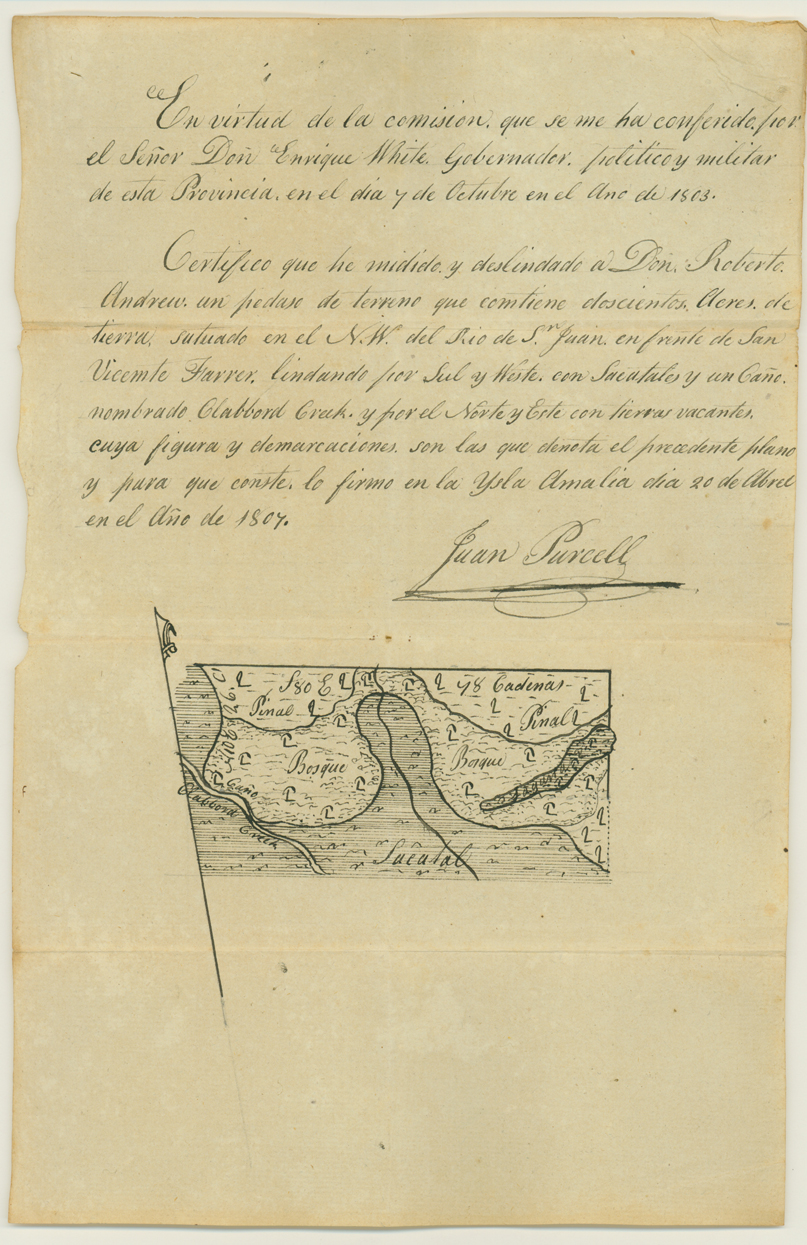 En virtud de la comision. que se me ha conferido. por
el Señor Don Enrique White. Gobernador. politico y militar
de esta Provincia. en el dia 7 de Octubre en el Ano de 1803.
Certifico que he midido. y deslindado a Don. Roberto.
Andrew. un pedaso de terreno que comtiene doscientos. Acres. de
tierra. satuado en el N.W. del Rio de Sn. Juan. en frente de San
Vicemte Farrer. lindando por Sul y Weste. con Sacatales y un Caño.
nombrado Clabbord Creek. y por el Norte y Este con tierras vacantes.
cuya figura y demarcaciones. son las que denota el precedente plano
y para que conste. lo firmo en la Ysla Amalia dia 20 de Abrel
en el Año de 1807.
Juan Purcell
S80 E 48 Cadenas
Pinal Pinal
Bosque Bosque
Caño
Clabbord
Creek
Sacatal